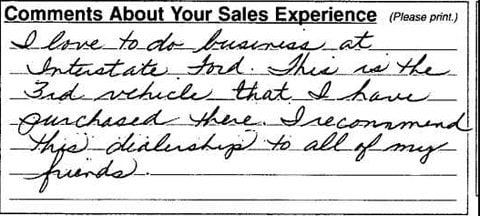 Comments About Your Sales Experience (Please print.)
I love to do business at
Interstate Ford. This is the
3rd vehicle that I have
purchased there. I recommend
this dealership to all of my
friends.